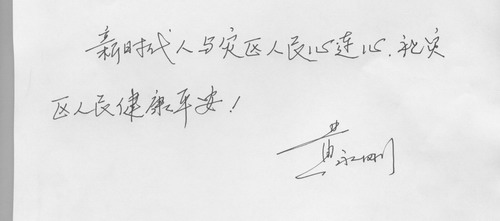 新时代人与灾区人民心连心.祝灾
区人民健康平安!
黄永刚